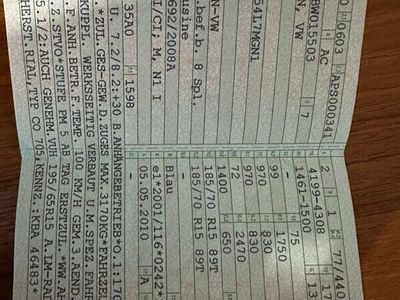 0603 AP8000341
AC
BW015503 7
N, VW
54L7MGN1
N-VW
.bef.b. 8 Spl.
usine
692/2008A
I/CI; M, N1 I
35A0 1598
2 1
4199-4308
1461-1500
1750
970 830
990 830
72 2470
1400 650
185/70 R15 89T
185/70 R15 89T
Blau
e1*2001/116*0242*
05.05.2010 A
U. 7.2/8.2:+30 B.ANHÄNGEBETRIEB*O.1:170
*ZUL.GES-GEW.D.ZUGES MAX.3170KG*FAHRZEU
KUPPL. WERKSSEITIG VERBAUT U.M.SPEZ.FAHR
.F.ANH.BETR.F.TEMP. 100 KM/H GEM.3.AEND.
2.STVO*STUFE PM 5 AB TAG ERSTZUL.*WW.AH
5.1/2:AUCH GENEHM.VUH 195/65R15 A.LM-RAD
HERST.RIAL,TYP CO 705,KENNZ.:KBA 46483*